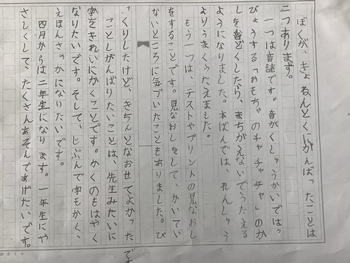 ぼくが、きょねんとくにがんばったことは
二つあります。
一つは音読です。音がくしゅうかいではっ
ぴょうする「おもちゃのチャチャチャ」のか
しを音どくしたら、まちがえないでうたえる
ようになりました。本ばんでは、れんしゅう
よりうまくうたえました。
もう一つは、テストやプリントの見なおし
をすることです。見なおしをして、かいてい
ないところに気づいたこともありました。び
っくりしたけど、きちんとなおせてよかったです。
ことしがんばりたいことは、先生みたいに
字をきれいにかくことです。かくのもはやく
なりたいです。そして、じぶんで字もかく、
えほんさっかになりたいです。
四月からは二年生になります。一年生にや
さしくして、たくさんあそんであげたいです。